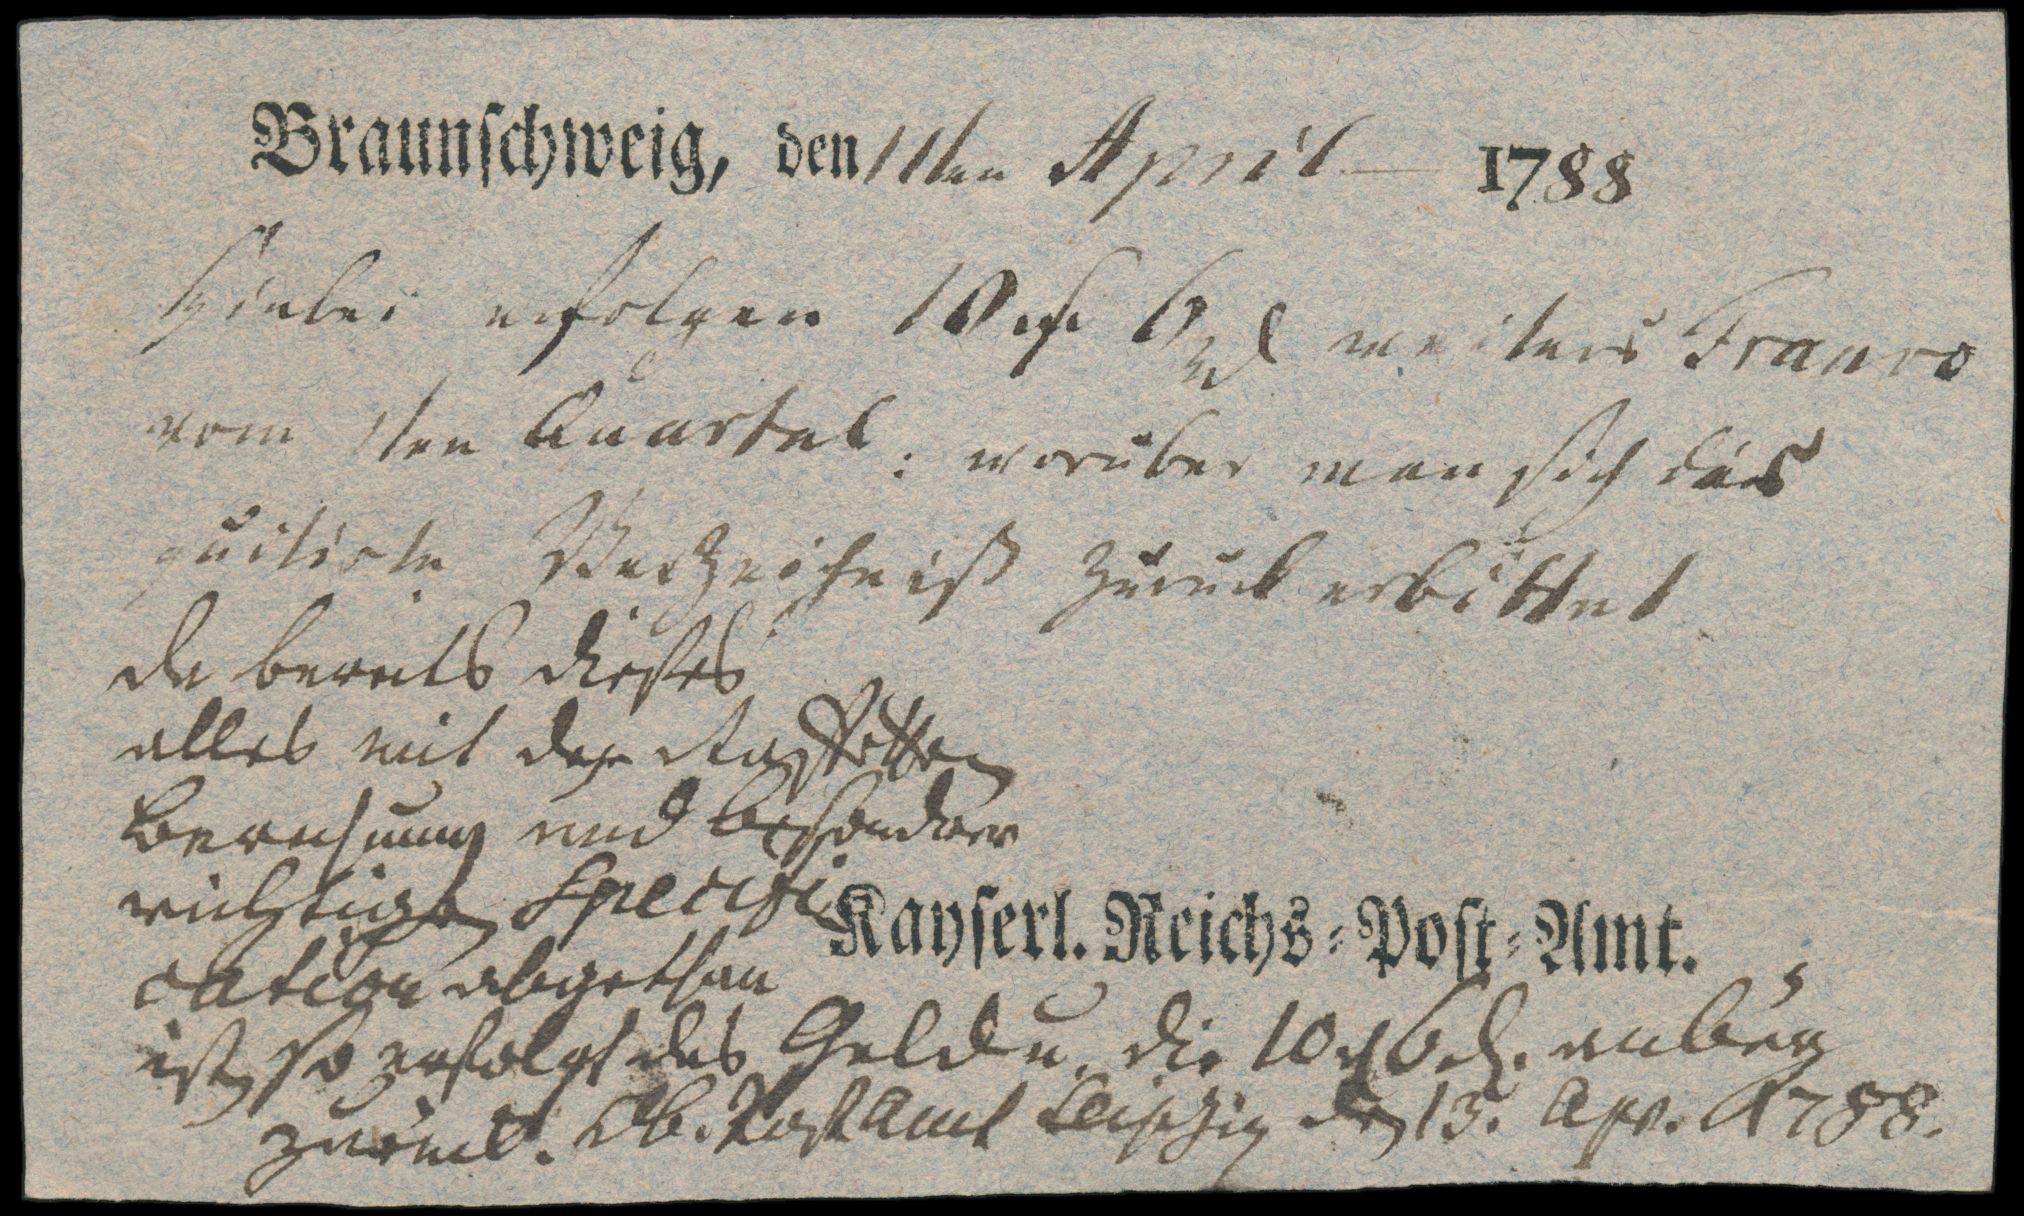 Braunschweig, den 11ten April 1788
Hierbei erfolgen 10 rh 6 d weiters Franco
vom 1ten Quartal: worüber man sich das
quitirte Verzeichniß zurück erbittet
da bereits dieses
alles mit der Estaffetten
Berechnung und besonderer
richtigen Specifi
cation abgethan
ist, so erfolgt das Geld u. die 10 rh 6 d. anbey
zurück. Ob. Post Amt Leipzig den 13. Apr. 1788.
Kayserl. Reichs-Post-Amt.